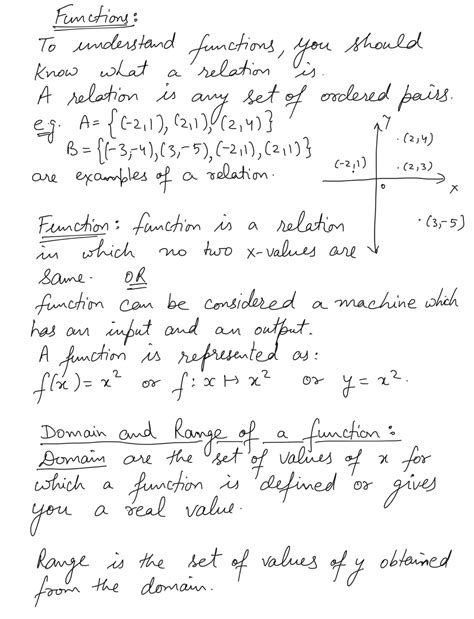 Functions:
To understand functions, you should
know what a relation is.
A relation is any set of ordered pairs.
e.g. A = {(-2,1), (2,1), (2,4)}
B = {(-3,-4), (3,-5), (-2,1), (2,1)}
are examples of a relation.
y
.(2,4)
(-2,1)
.(2,3)
o
x
.(3,-5)
Function: function is a relation
in which no two x-values are
same. OR
function can be considered a machine which
has an input and an output.
A function is represented as:
f(x) = x² or f: x ↦ x² or y = x².
Domain and Range of a function:
Domain are the set of values of x for
which a function is defined or gives
you a real value.
Range is the set of values of y obtained
from the domain.